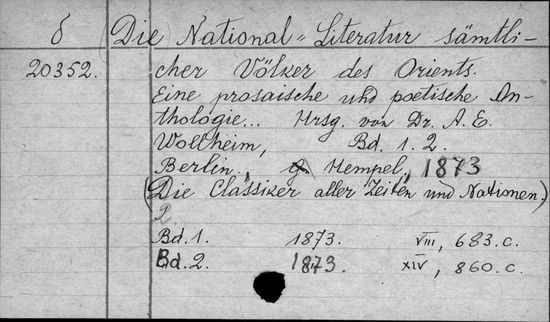 δ (Die) National-Literatur sämtli-
20352. cher Völker des Orients.
Eine prosaische und poetische An-
thologie... Hrsg. von Dr. A. E.
Wollheim, Bd. 1. 2.
Berlin, G. Hempel, 1873
(Die Classiker aller Zeiten und Nationen.)
2.
Bd. 1. 1873. VIII, 683. c.
Bd. 2. 1873. XIV, 860. c.